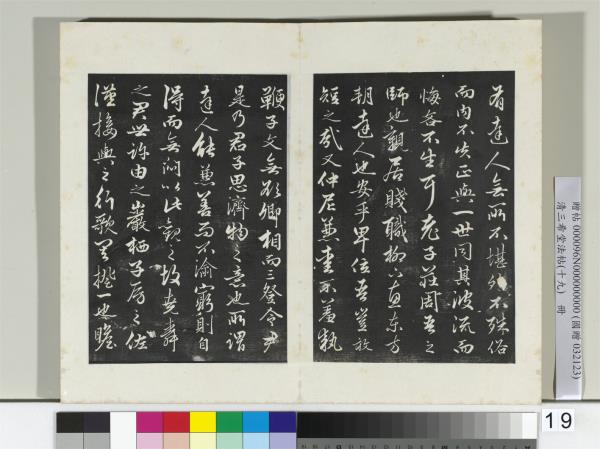 有達人無所不堪外不殊俗
而內不失正與一世同其波流而
悔吝不生耳老子莊周吾之
師也親居賤職柳下惠東方
朔達人也安乎卑位吾豈敢
短之哉又仲尼兼愛不羞執
鞭子文無欲卿相而三登令尹
是乃君子思濟物之意也所謂
達人能兼善而不渝窮則自
得而無悶以此觀之故堯舜
之君世許由之巖栖子房之佐
漢接輿之行歌其揆一也瞻
贈帖 000096N000000000 (國贈 032123)
清三希堂法帖(十九) 冊
19